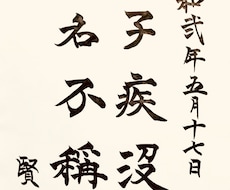 和弐年五月十七日
子疾没
名不稱
賢